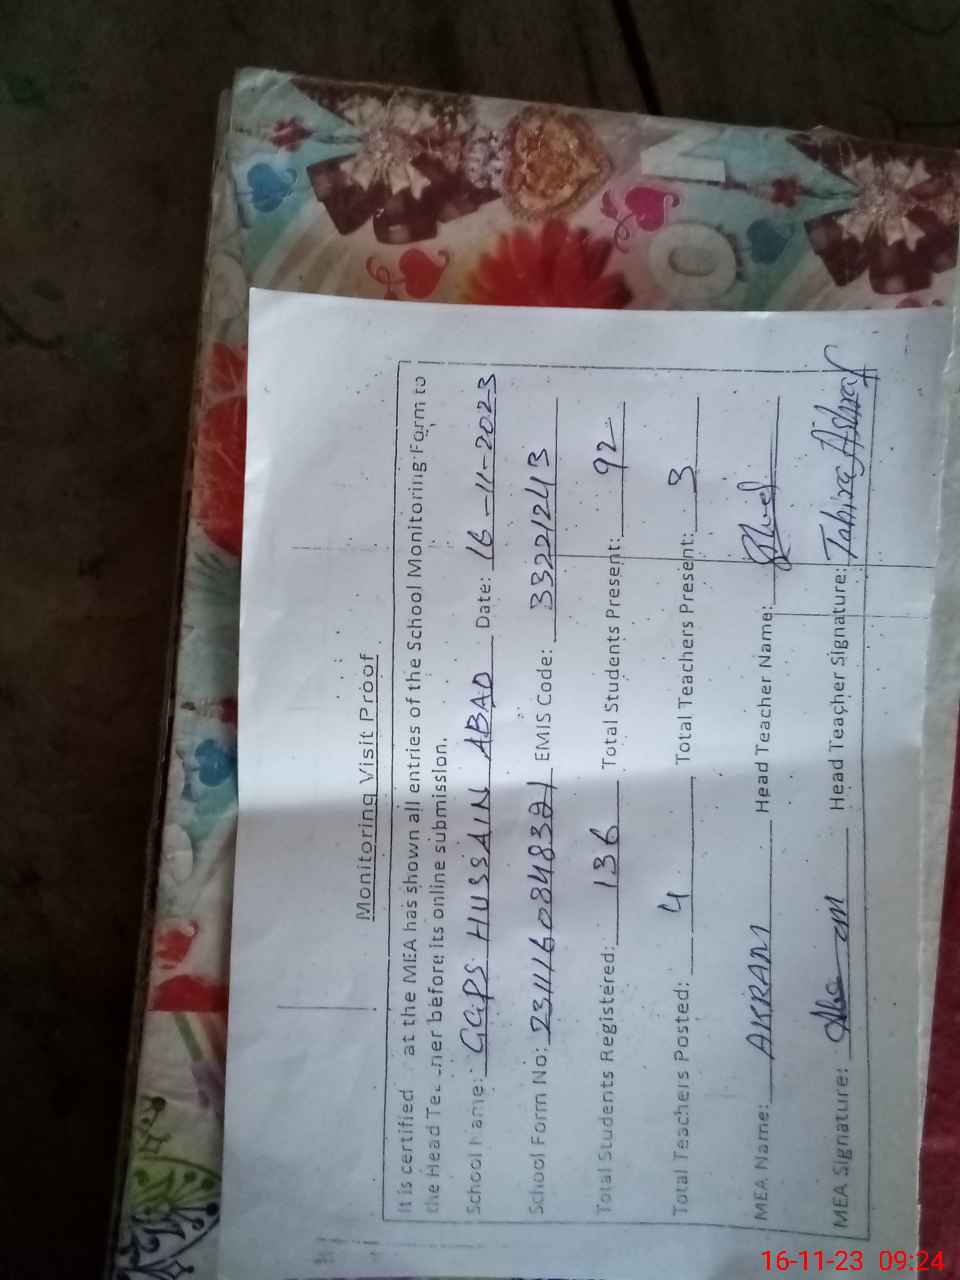 Monitoring Visit Proof
It is certified at the MEA has shown all entries of the School Monitoring Form to
the Head before its online submission.
School Name: GGPS HUSSAIN ABAD Date: 16-11-2023
School Form No: 231116084832 EMIS Code: 33221243
Total Students Registered: 136 Total Students Present: 92
Total Teachers Posted: 4 Total Teachers Present: 3
MEA Name: AKRAM Head Teacher Name:
MEA Signature: Head Teacher Signature: Tahira Ashraf
N
O
16-11-23 09:24